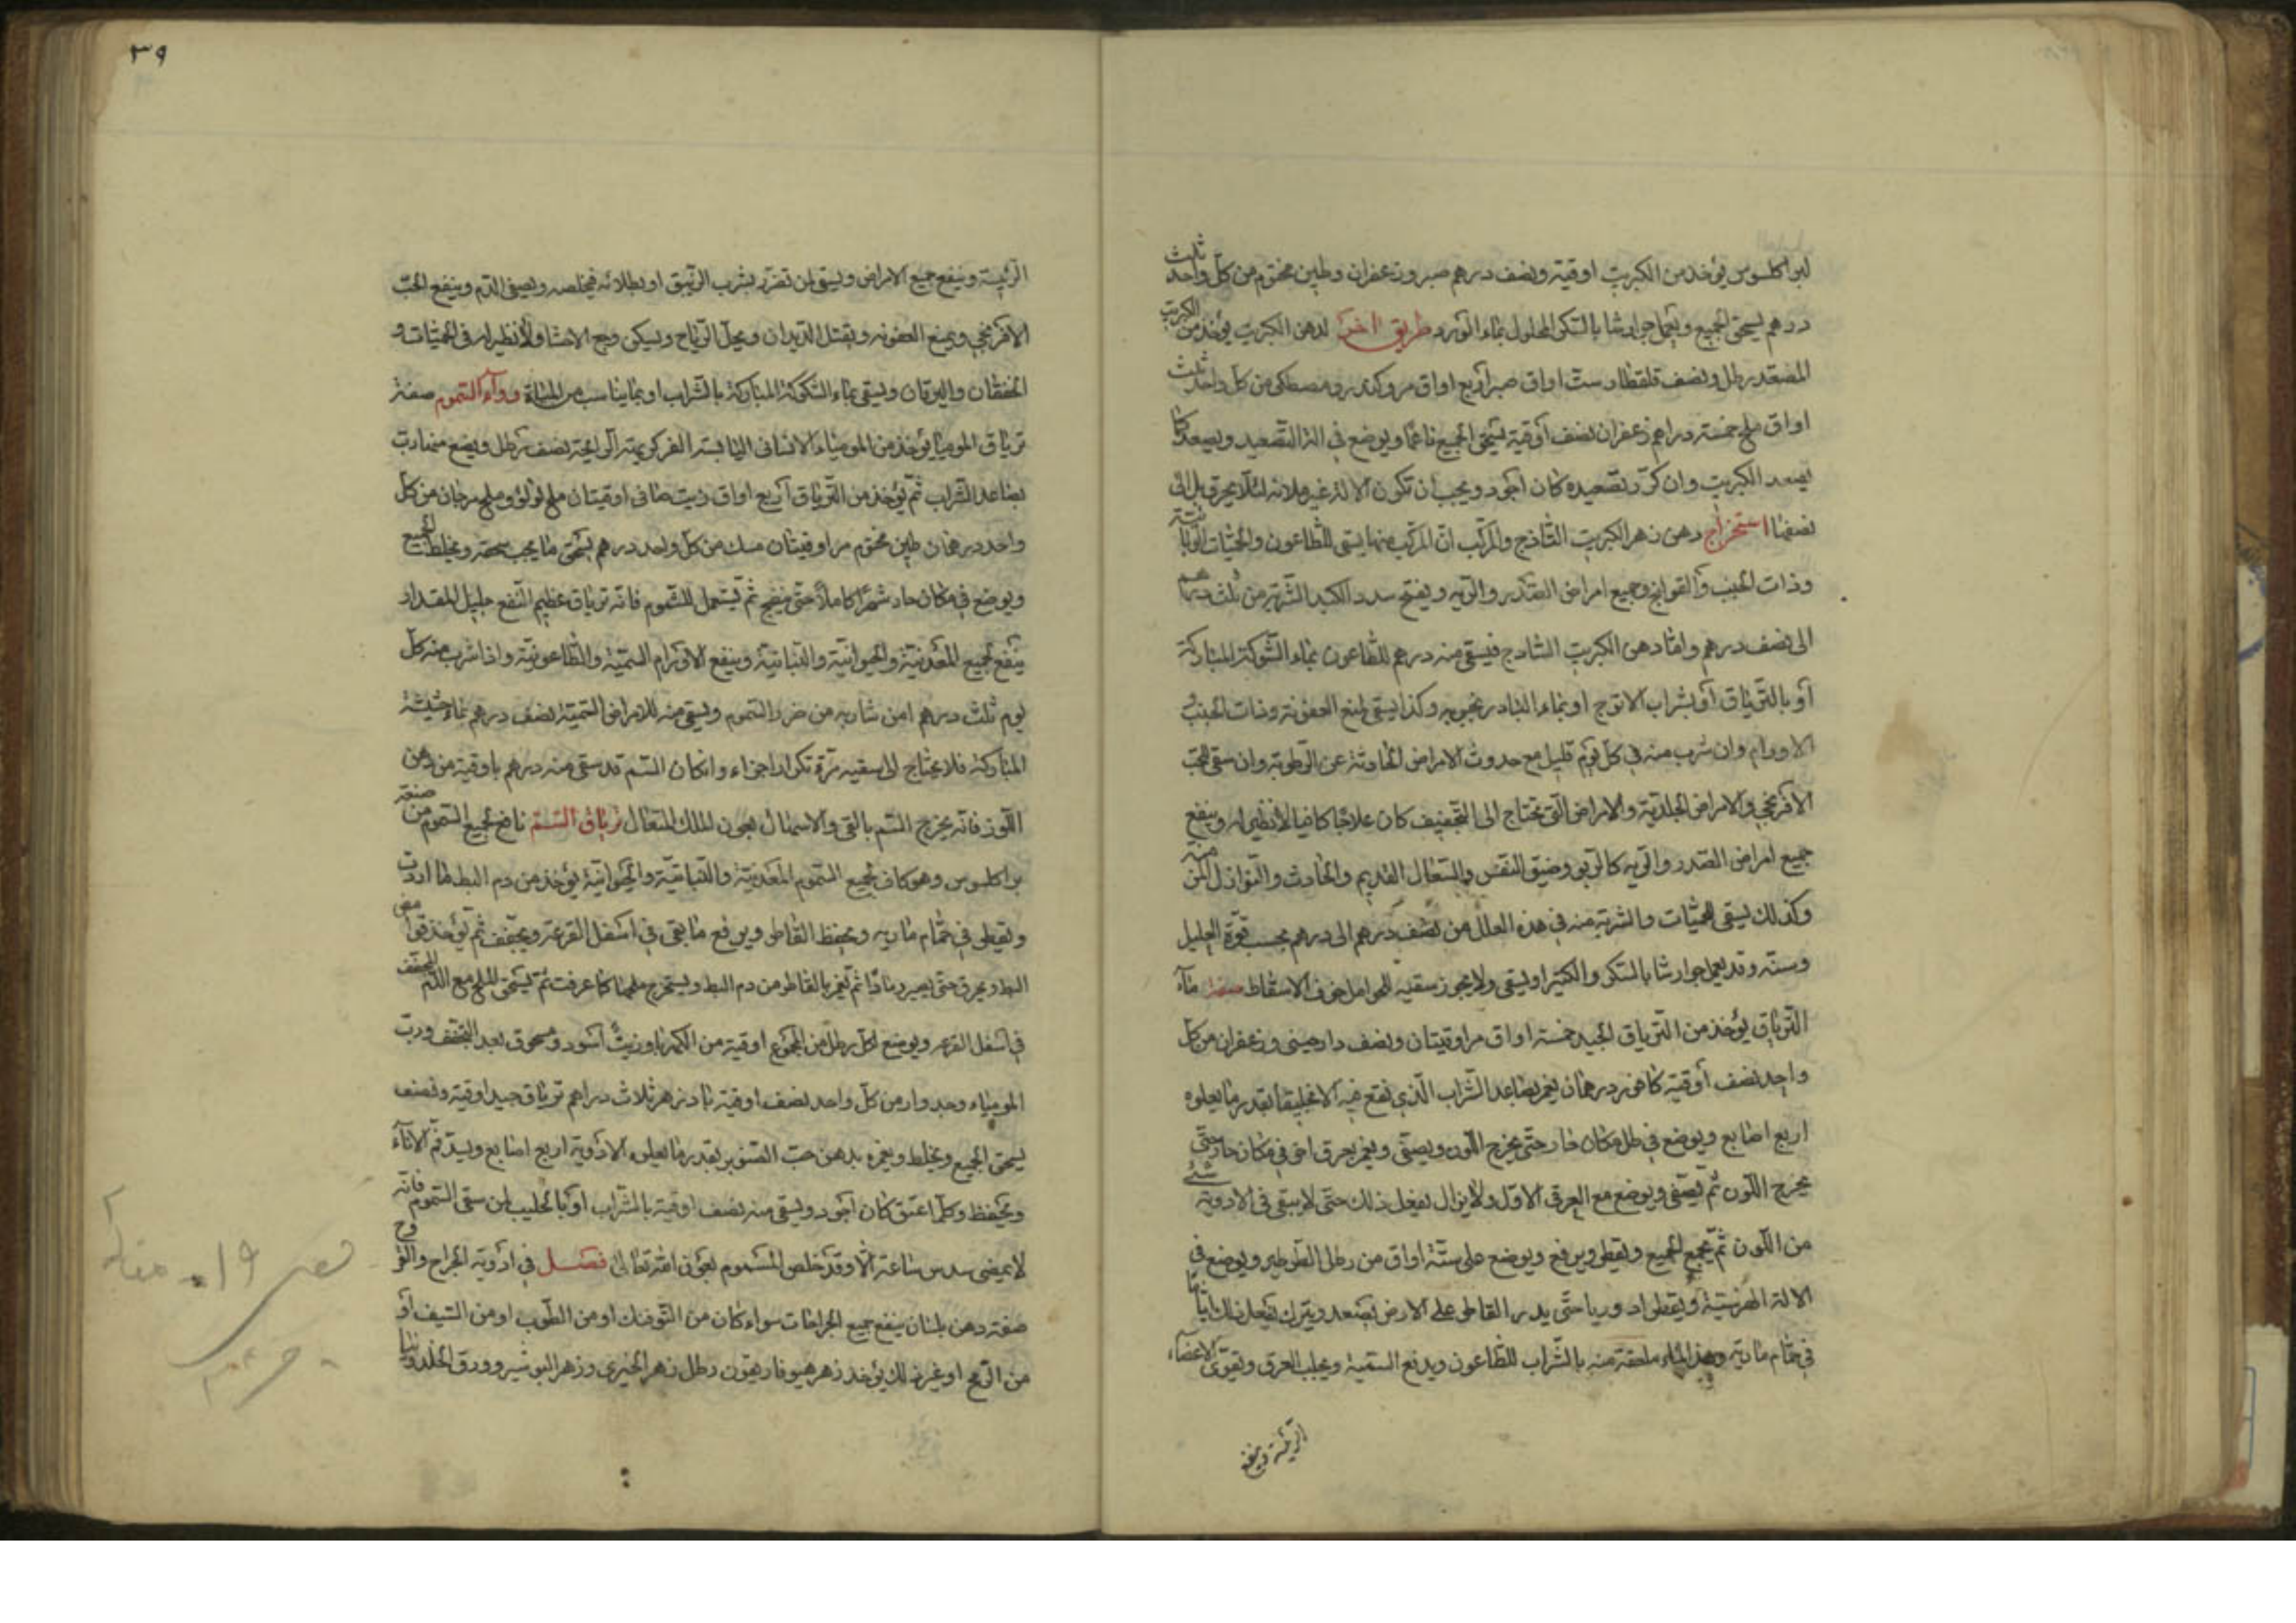 لبراكلسوس يؤخذ من الكبريت اوقية ونصف درهم صبر وزعفران وطين مختوم من كل واحد ثلث
درهم يسحق الجميع ويعمل جوارشا بالسكر المحلول بماء الورد طريق اخر لدهن الكبريت يؤخذ من الكبريت
المصعد رطل ونصف قلقطار ست اواق صبر اربع اواق مر وكندر ومصطكى من كل واحد ثلث
اواق ملح خمسة دراهم زعفران نصف اوقية يسحق الجميع ناعما ويوضع في الة التصعيد ويصعد كما
يصعد الكبريت وان كرر تصعيده كان اجود ويجب ان تكون الالة غير ملانه لئلا يحرق بل الى
نصفها استخراج دهن زهر الكبريت الساذج والمركب ان المركب منهما يسقى للطاعون والحميات الوبائية
وذات الجنب والقولنج وجميع امراض الصدر والريه ويفتح سدد الكبد الشربة من ثلث درهم
الى نصف درهم واما دهن الكبريت الساذج فيسقى منه درهم للطاعون بماء الشوكة المباركة
او بالترياق او بشراب الاترج او بماء البادرنجبويه وكذا يسقى لمنع العفونة وذات الجنب و
الاورام وان شرب منه في كل يوم قليل مع حدوث الامراض الحادثة عن الرطوبة وان سقى للحب
الافرنجي والامراض الجلدية والامراض التي تحتاج الى التجفيف كان علاجا كافيا لا نظير له وينفع
جميع امراض الصدر والريه كالربو وضيق النفس والسعال القديم والحادث والنوازل المزمنه
وكذلك يسقى للحميات والشربة منه في هذه العلل من نصف درهم الى درهم بحسب قوة العليل
وسنه وقد يعمل جوارشا بالسكر والكثيرا ويسقى ولا يجوز سقيه للحوامل خوف الاسقاط صفة ماء
الترياق يؤخذ من الترياق الجيد خمسة اواق مر اوقيتان ونصف دارصيني وزعفران من كل
واحد نصف اوقية كافور درهمان يغمر بصاعد الشراب الذي نقع فيه الانجليقا بقدر ما يعلوه
اربع اصابع ويوضع في ظل مكان حار حتى يخرج اللون ويصفى ويغمر بعرق اخر في مكان حار حتى
يخرج اللون ثم يصفى ويوضع مع العرق الاول ولا يزال يفعل ذلك حتى لا يبقى في الادوية شئ
من اللون ثم يجمع الجميع ويقطر ويرفع ويوضع على ستة اواق من رطل الطرطير ويوضع في
الالة ويقطر حتى يدر القاطر على الارض يصعد ويترك يفعل ذلك ثانيا
في حمام ماريه وهذا الماء ملعقة منه بالشراب للطاعون ويدفع السمية ويجلب العرق ويقوي الاعضاء
الرئيسة وينفع
٣٩
الرئيسة وينفع جميع الامراض ويسقى لمن تضرر بشرب الزيبق او بطلائه فيخلصه ويصفي الدم وينفع الحب
الافرنجي ويمنع العفونه ويقتل الديدان ويحلل الرياح ويسكن وجع الاحشاء ولا نظير له في الحميات و
الخفقان واليرقان ويسقى بماء الشكوكة المباركة بالشراب او بما يناسب من المياه دواء السموم صفة
ترياق الموميا يؤخذ من المومياء الانساني اليابسة الغير كريهة الرايحة نصف رطل ويضع منها رب
بصاعد الشراب ثم يؤخذ من الترياق اربع اواق زيت صافي اوقيتان ملح لؤلؤ وملح مرجان من كل
واحد درهمان طين مختوم مر اوقيتان مسك من كل واحد درهم يسحق ما يجب سحقه ويخلط الجميع
ويوضع في مكان حار شهرا كاملا حتى ينضج ثم يستعمل للسموم فانه ترياق عظيم النفع جليل المقدار
ينفع لجميع المعدنية والحيوانية والنباتية وينفع الاورام السمية والطاعونية واذا شرب منه كل
يوم ثلث درهم امن شاربه من ضرر السموم ويسقى منه للامراض السمية نصف درهم بماء حشيشة
المباركة فلا يحتاج الى سقيه مرة تكرار اخرى وان كان السم قد سقى منه درهم باوقية من دهن
اللوز فانه يخرج السم بالقي والاسهال بعون الملك المتعال ترياق السم نافع لجميع السموم من صنعة
براكلسوس وهو كاف لجميع السموم المعدنية والنباتية والحيوانية يؤخذ من دم البط ما اردت
ويقطر في حمام ماريه ويحفظ القاطر ويرفع ما بقى في اسفل القرعة ويجفف ثم يؤخذ
البط ويحرق حتى يصير رمادا ثم يغمر بالقاطر من دم البط ويستخرج ملحها كما عرفت ثم يسحق الملح مع الدم المجفف
في اسفل القرعه ويوضع لكل رطل من المجموع اوقية من الكهربا وزيت اسود مسحوق بعد التجفف ورب
المومياء وجدوار من كل واحد نصف اوقية بادزهر ثلاث دراهم ترياق جيد اوقية ونصف
يسحق الجميع ويخلط ويغمره بدهن حب الصنوبر بقدر ما يعلوه الادوية اربع اصابع ويسد فم الاناء
ويحفظ وكلما عتق كان اجود ويسقى منه نصف اوقية بالشراب او بالحليب لمن سقى السموم فانه
لا يمضى سدس ساعة الا وقد خلص المسموم بعون الله تعالى فصل في ادوية الجراح والقروح
صفة دهن بلسان ينفع جميع الجراحات سواء كان من التوفنك او من الطوب او من السيف او
من الرمح او غير ذلك يؤخذ زهر هيوفاريقون رطل زهر الخيري وزهر البوشير وورق